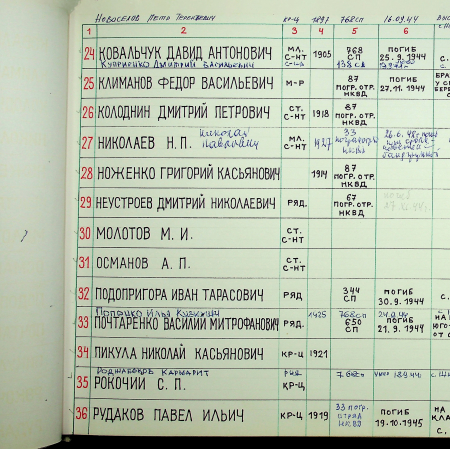 Новоселов Петр Терентьевич КР-Ц 1897 768сп 16.09.44
1 2 3 4 5 6
24 КОВАЛЬЧУК ДАВИД АНТОНОВИЧ МЛ. С-НТ 1905 768 СП ПОГИБ 25.9.1944 С.
Куприенко Дмитрий Васильевич 138 СД
25 КЛИМАНОВ ФЕДОР ВАСИЛЬЕВИЧ М-Р 87 ПОГР. ОТР. НКВД ПОГИБ 27.11.1944
26 КОЛОДНИН ДМИТРИЙ ПЕТРОВИЧ СТ. С-НТ 1918 87 ПОГР. ОТР. НКВД
27 НИКОЛАЕВ Н.П. Николай Павлович МЛ. С-НТ 1927 33 НКВД
28 НОЖЕНКО ГРИГОРИЙ КАСЬЯНОВИЧ 1914 87 ПОГР. ОТР. НКВД
29 НЕУСТРОЕВ ДМИТРИЙ НИКОЛАЕВИЧ РЯД. 67 ПОГР. ОТР. НКВД
30 МОЛОТОВ М.И. СТ. С-НТ
31 ОСМАНОВ А.П. СТ. С-НТ
32 ПОДОПРИГОРА ИВАН ТАРАСОВИЧ РЯД 344 СП ПОГИБ 30.9.1944 С.
Попенко Илья Кузьмич 1925 768сп
33 ПОЧТАРЕНКО ВАСИЛИЙ МИТРОФАНОВИЧ РЯД. 650 СП ПОГИБ 21.9.1944 НА ЮГО- ОТ
34 ПИКУЛА НИКОЛАЙ КАСЬЯНОВИЧ КР-Ц 1921
35 РОКОЧИЙ С.П. КР-Ц
36 РУДАКОВ ПАВЕЛ ИЛЬИЧ КР-Ц 1919 33 погр. отряд НКВД ПОГИБ 19.10.1945 НА КЛА С.